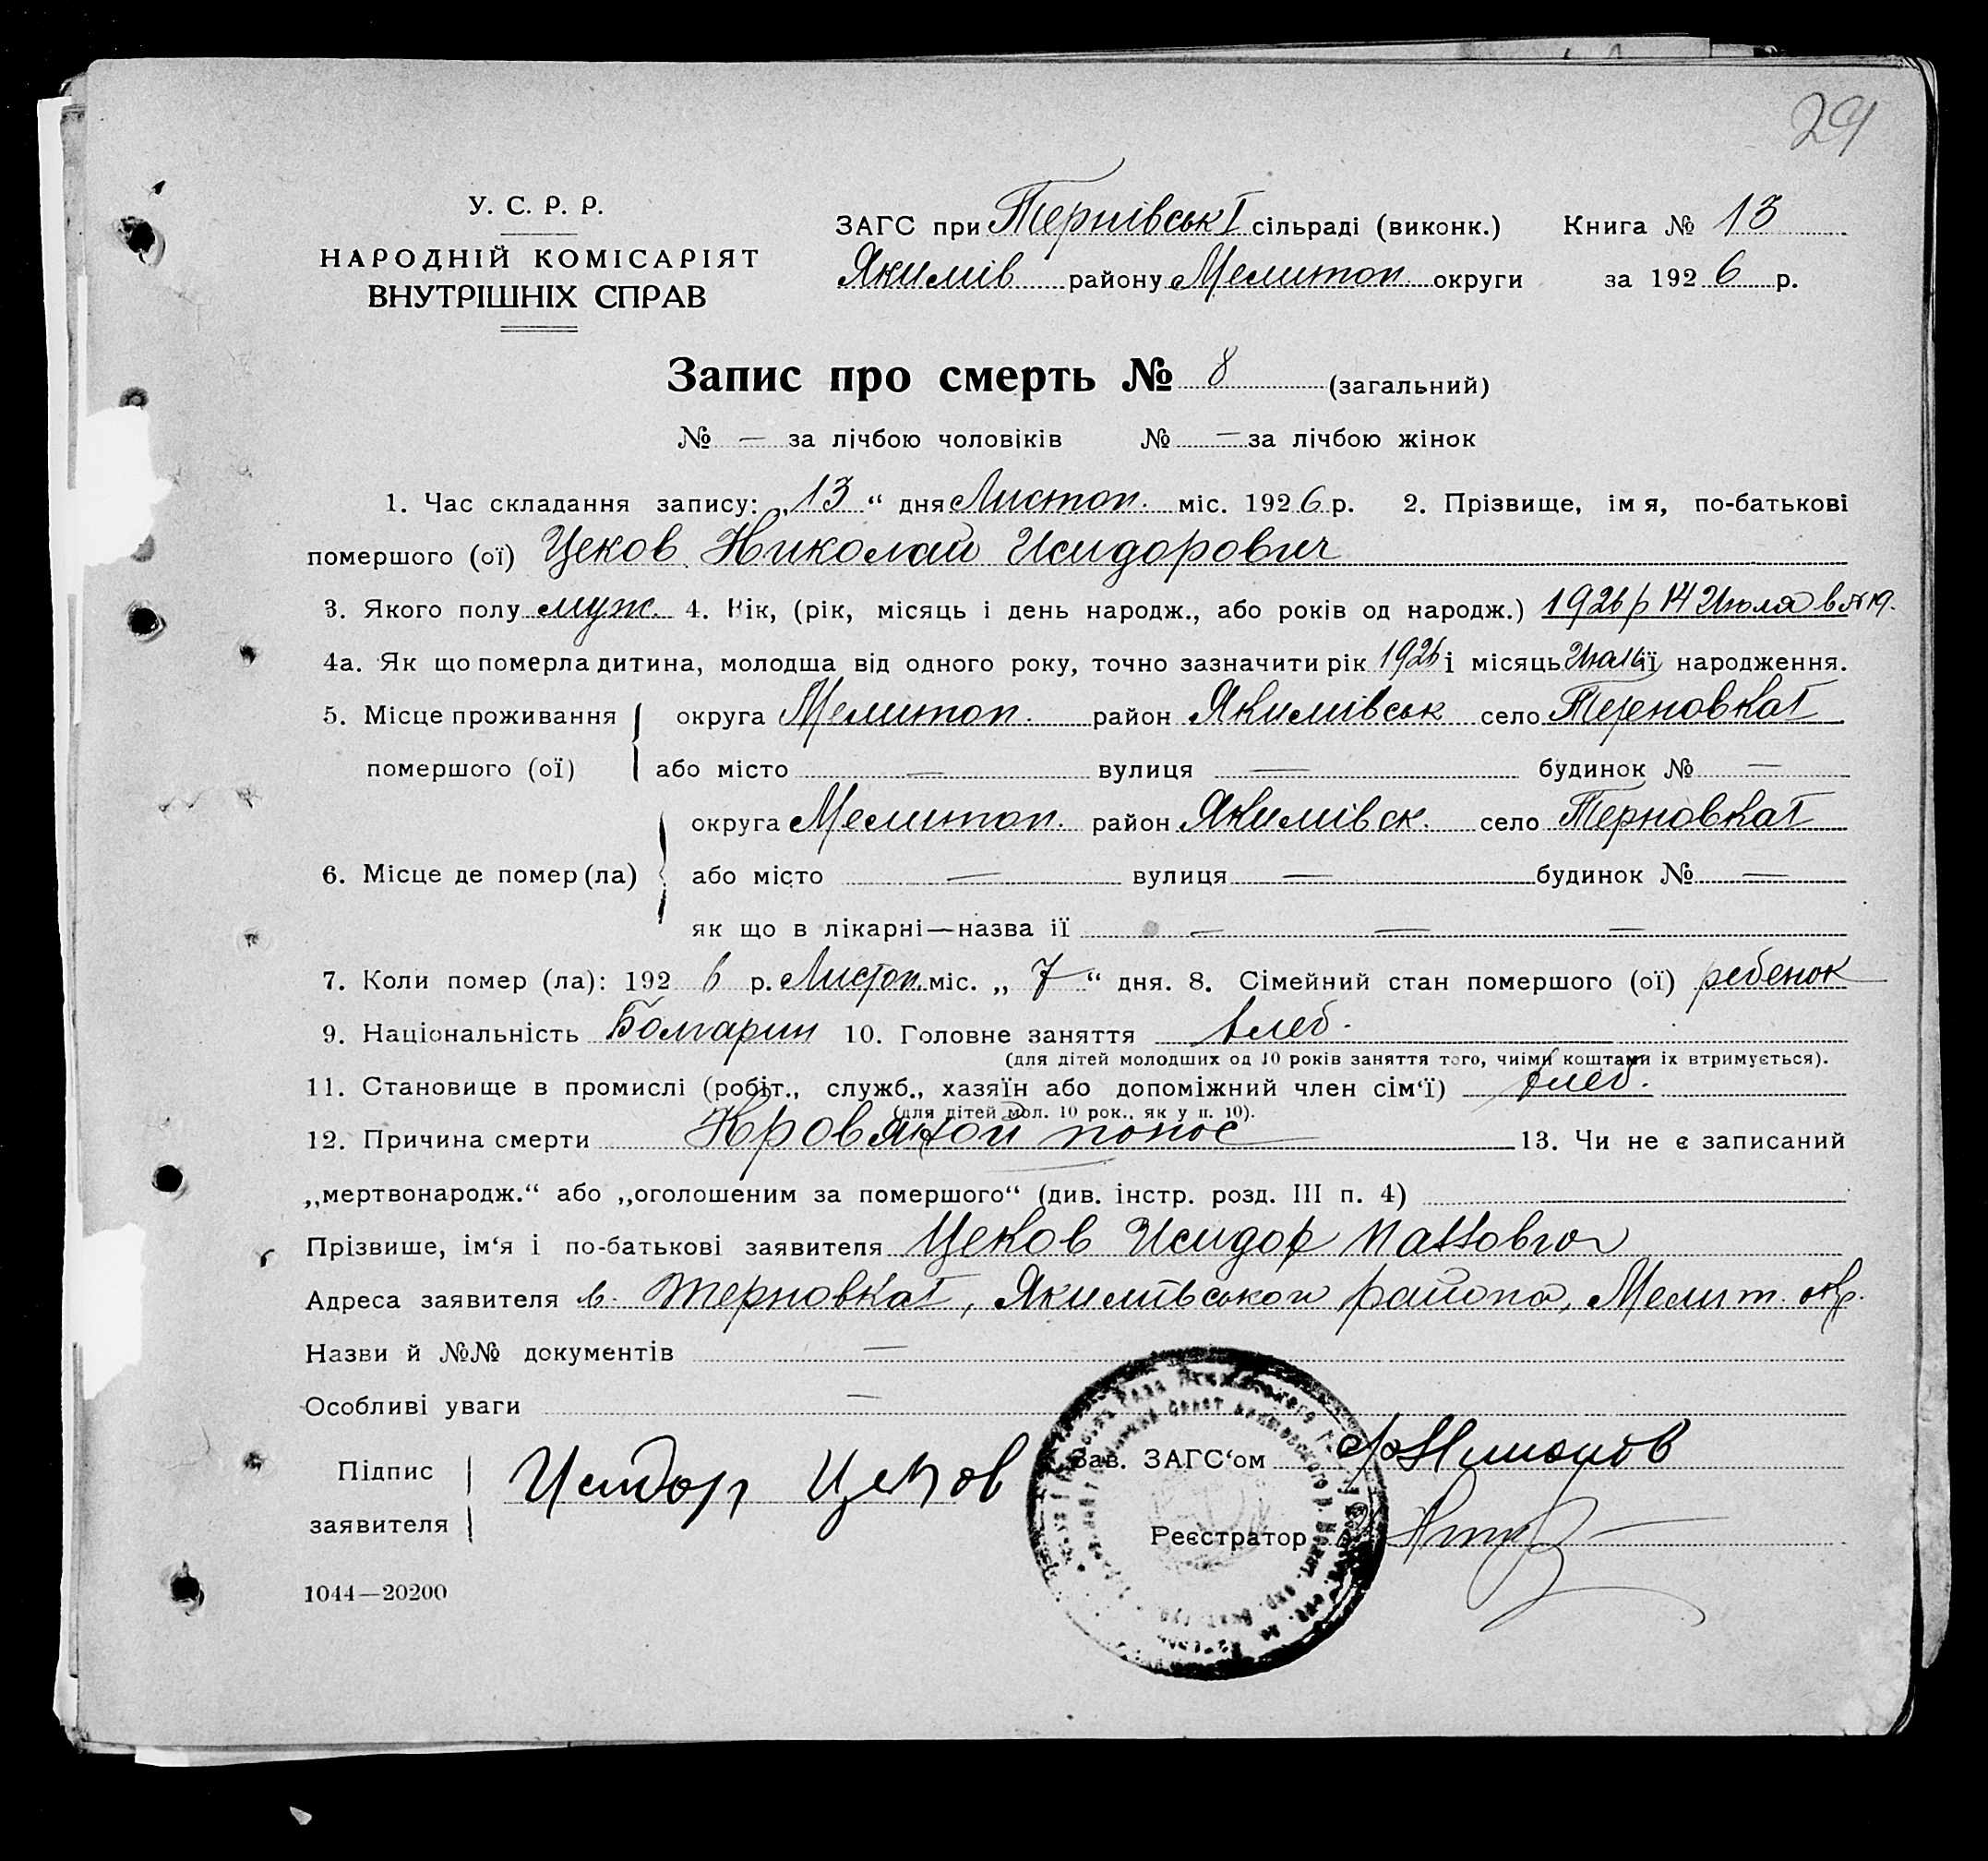 29
У. С. Р. Р.
НАРОДНІЙ КОМІСАРІЯТ
ВНУТРІШНІХ СПРАВ
ЗАГС при Тернівськ I сільраді (виконк.) Книга № 13
Якимів району Мелитоп. округи за 1926 р.
Запис про смерть № 8 (загальний)
№ — за лічбою чоловіків № — за лічбою жінок
1. Час складання запису: „13“ дня Листоп. міс. 1926 р. 2. Прізвище, імя, по-батькові
помершого (ої) Цеков Николай Исидорович
3. Якого полу муж. 4. Вік, (рік, місяць і день народж., або років од народж.) 1926 р 14 Июля
4а. Як що померла дитина, молодша від одного року, точно зазначити рік 1926 і місяць її народження.
5. Місце проживання помершого (ої) округа Мелитоп. район Якимівськ село Терновка I
або місто — вулиця — будинок № —
6. Місце де помер (ла) округа Мелитоп. район Якимівск. село Терновка I
або місто — вулиця — будинок № —
як що в лікарні—назва її — — —
7. Коли помер (ла): 1926 р. Листоп. міс. „7“ дня. 8. Сімейний стан помершого (ої) ребенок
9. Національність Болгарин 10. Головне заняття хлеб.
(для дітей молодших од 10 років заняття того, чиїми коштами їх втримується).
11. Становище в промислі (робіт., служб., хазяїн або допоміжний член сім‘ї) хлеб.
(для дітей мол. 10 рок., як у п. 10).
12. Причина смерти Кровяной понос 13. Чи не є записаний
„мертвонародж.“ або „оголошеним за помершого“ (див. інстр. розд. III п. 4)
Прізвище, ім‘я і по-батькові заявителя Цеков Исидор
Адреса заявителя в. Терновка I, Якимівської района, Мелит. окр.
Назви й №№ документів —
Особливі уваги —
Підпис заявителя Исидор Цеков
Зав. ЗАГС‘ом
Реєстратор
1044—20200